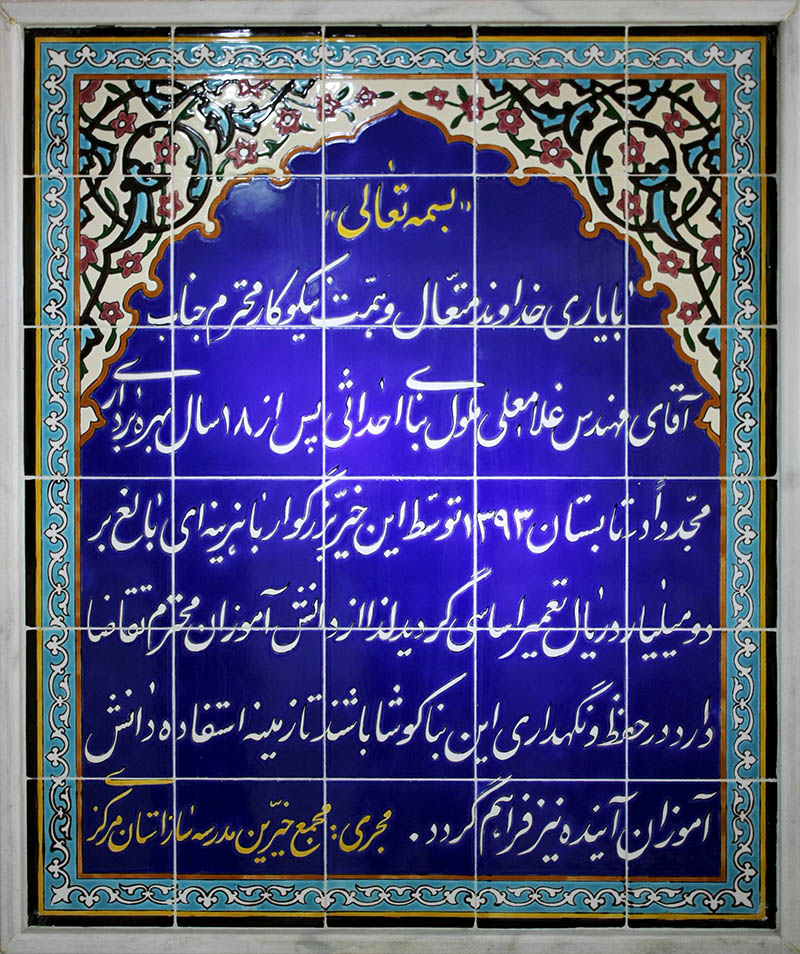 «بسمه تعالی»
بایاری خداوند متعّال و همّت نیکوکار محترم جناب
آقای مهندس غلامعلی ملولی بنای احداثی پس از ۱۸ سال بهره برداری
مجّدداً در تابستان ۱۳۹۳ توسّط این خیّر بزرگوار با هزینه ای بالغ بر
دو میلیارد ریال تعمیر اساسی گردید لذا از دانش آموزان محترم تقاضا
دارد در حفظ و نگهداری این بنا کوشا باشند تا زمینه استفاده دانش
آموزان آینده نیز فراهم گردد . مجری : مجمع خیّرین مدرسه ساز استان مرکزی